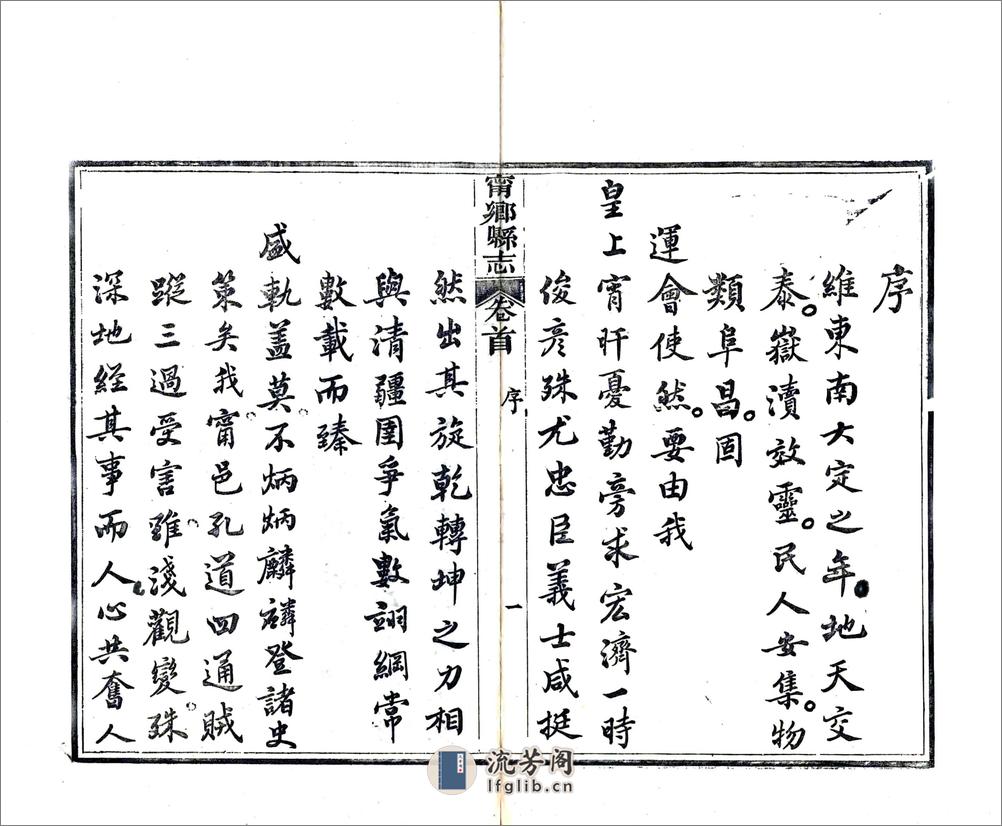 序
維東南大定之年地天交
泰。嶽瀆效靈。民人安集。物
類阜昌。固
運會使然。要由我
皇上宵旰憂勤旁求宏濟一時
俊彥殊尤忠臣義士咸挺
甯鄉縣志 卷首 序 一
然出其旋乾轉坤之力相
與清疆圉爭氣數翊綱常
數載而臻
盛軌蓋莫不炳炳麟麟登諸史
策矣我甯邑孔道四通賊
蹤三過受害雖淺觀變殊
深地經其事而人心共奮人
流芳阁
lfglib.cn